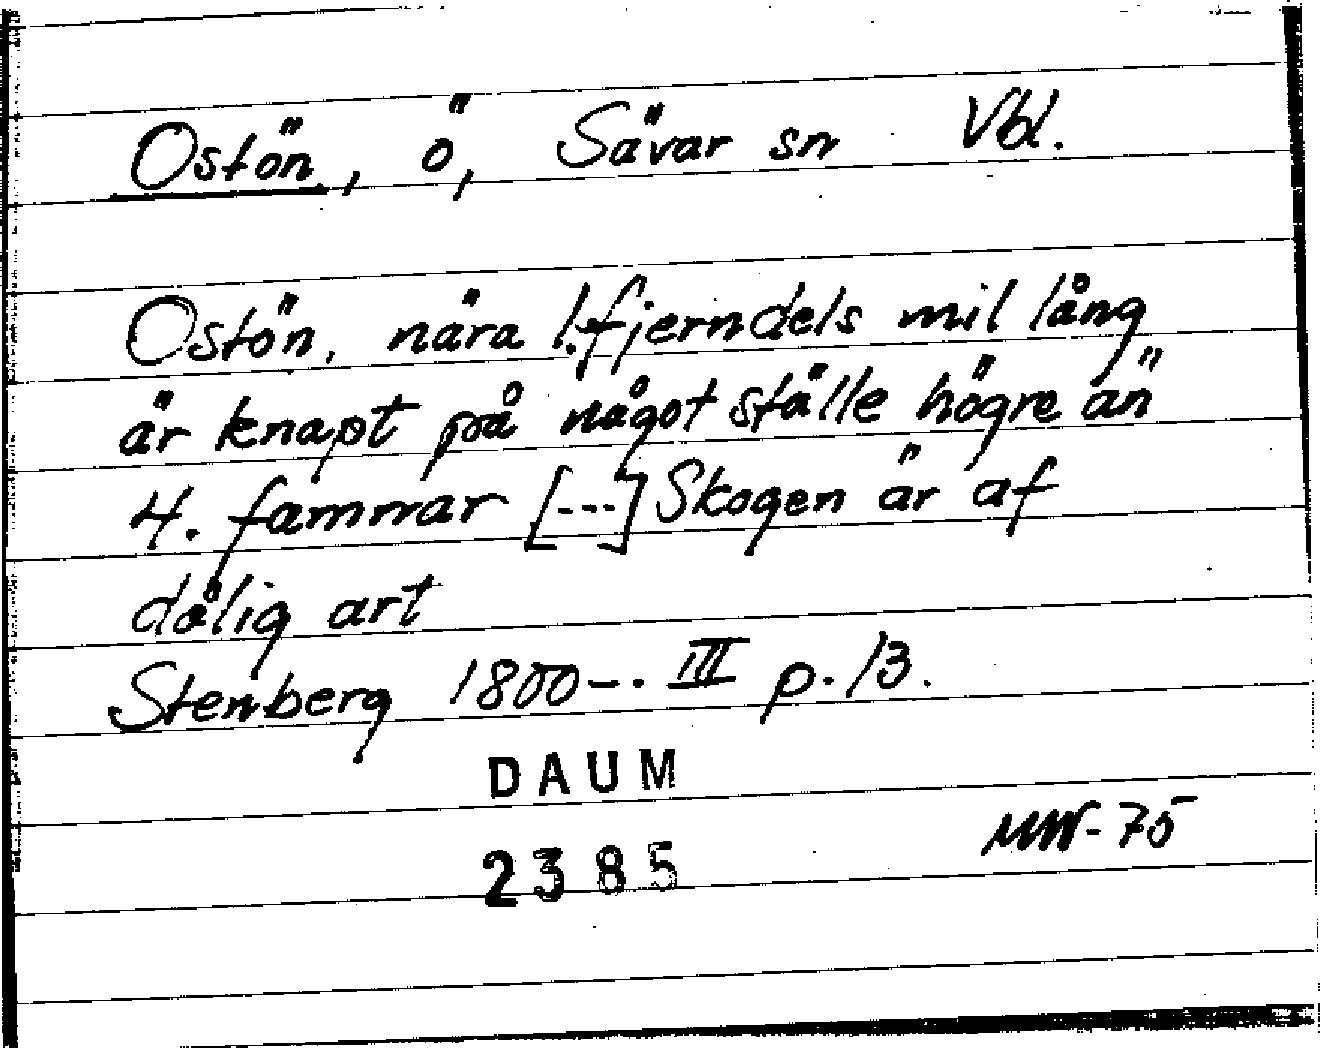 Ostön, ö, Sävar sn Vbl.
Ostön, nära 1. fjerndels mil lång
är knapt på något ställe högre än
4. famnar [---] Skogen är af
dålig art
Stenberg 1800-. III p. 13.
DAUM
MW-75
2385